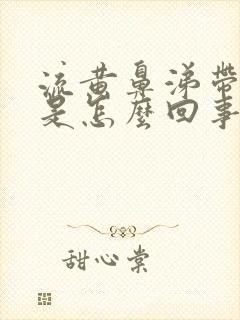 流黄鼻涕带
是怎麼回事
甜心棠